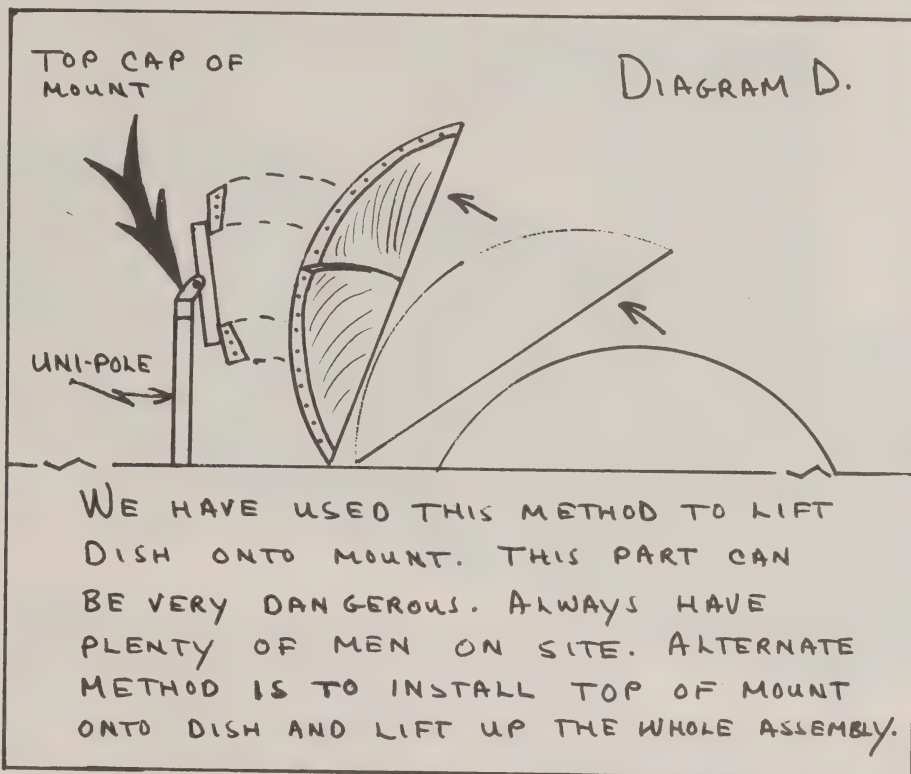 TOP CAP OF
MOUNT
DIAGRAM D.
UNI-POLE
WE HAVE USED THIS METHOD TO LIFT
DISH ONTO MOUNT. THIS PART CAN
BE VERY DANGEROUS. ALWAYS HAVE
PLENTY OF MEN ON SITE. ALTERNATE
METHOD IS TO INSTALL TOP OF MOUNT
ONTO DISH AND LIFT UP THE WHOLE ASSEMBLY.